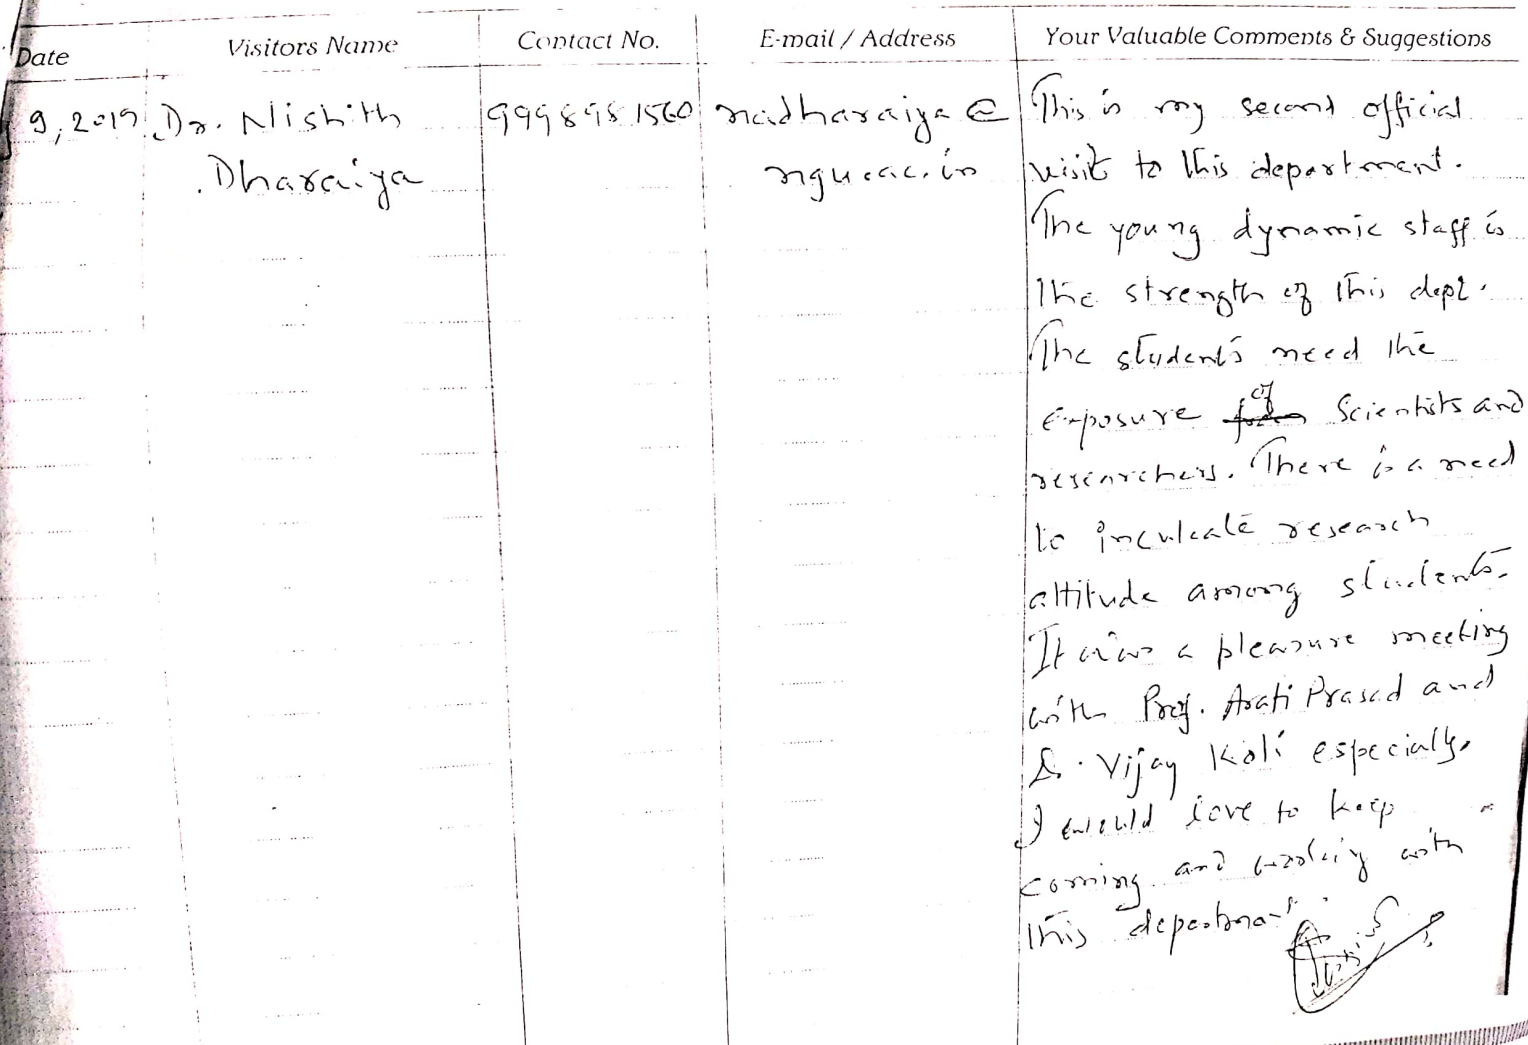 Date Visitors Name Contact No. E-mail / Address Your Valuable Comments & Suggestions
9, 2019 Dr. Nishith 9998981560 nadharaiya @ This is my second official
Dharaiya ngu.ac.in visit to this department.
The young dynamic staff is
the strength of this dept.
The students need the
exposure of Scientists and
researchers. There is a need
to inculcate research
attitude among students.
It was a pleasure meeting
with Prof. Arati Prasad and
Dr. Vijay Koli especially.
I would love to keep
coming and working with
this department.